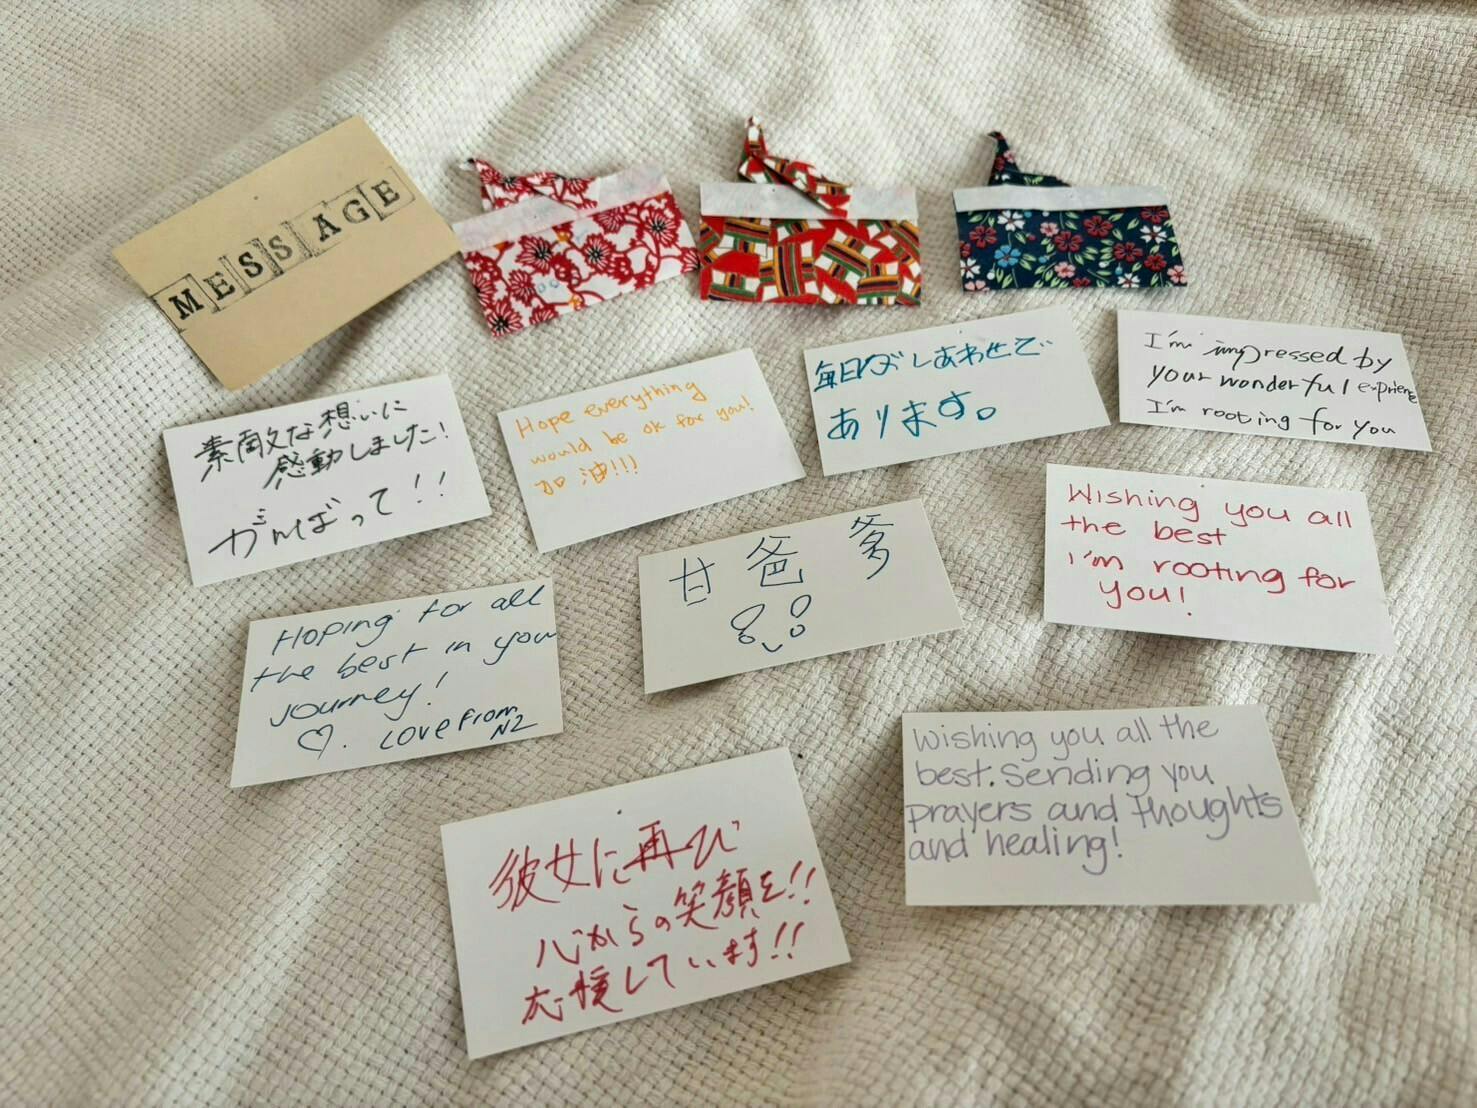 MESSAGE
素敵な想いに
感動しました!
がんばって!!
Hope everything
would be ok for you!
加油!!!
毎日がしあわせで
あります。
I'm impressed by
your wonderful exprience
I'm rooting for you
Hoping for all
the best in your
journey!
♡. Love from
NZ
甘爸爹
Wishing you all
the best
I'm rooting for
you!
彼女に再び
心からの笑顔を!!
応援しています!!
Wishing you all the
best. Sending you
prayers and thoughts
and healing!